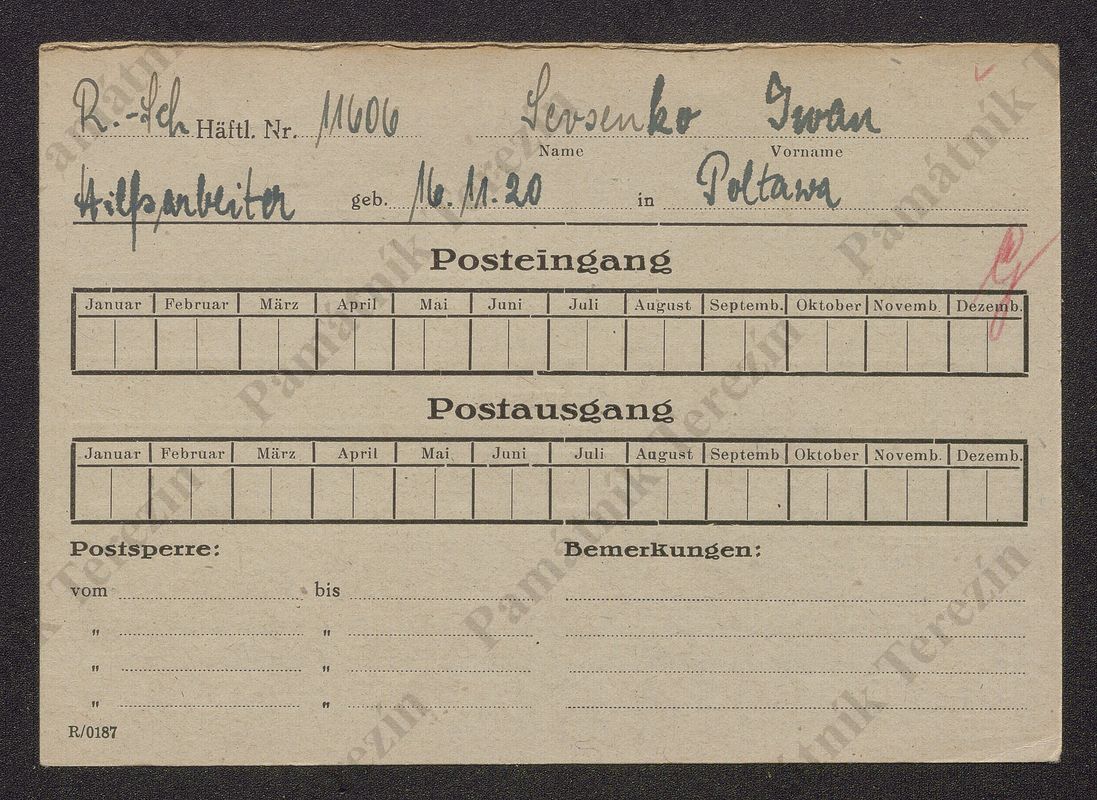 R.-Sch Häftl. Nr. 11606 Sevsenko Iwan
Name Vorname
Hilfsarbeiter geb. 16.11.20 in Poltawa
Posteingang
Januar Februar März April Mai Juni Juli August Septemb. Oktober Novemb. Dezemb.
Postausgang
Januar Februar März April Mai Juni Juli August Septemb Oktober Novemb. Dezemb.
Postsperre: Bemerkungen:
vom bis
" "
" "
" "
R/0187
Památník Terezín